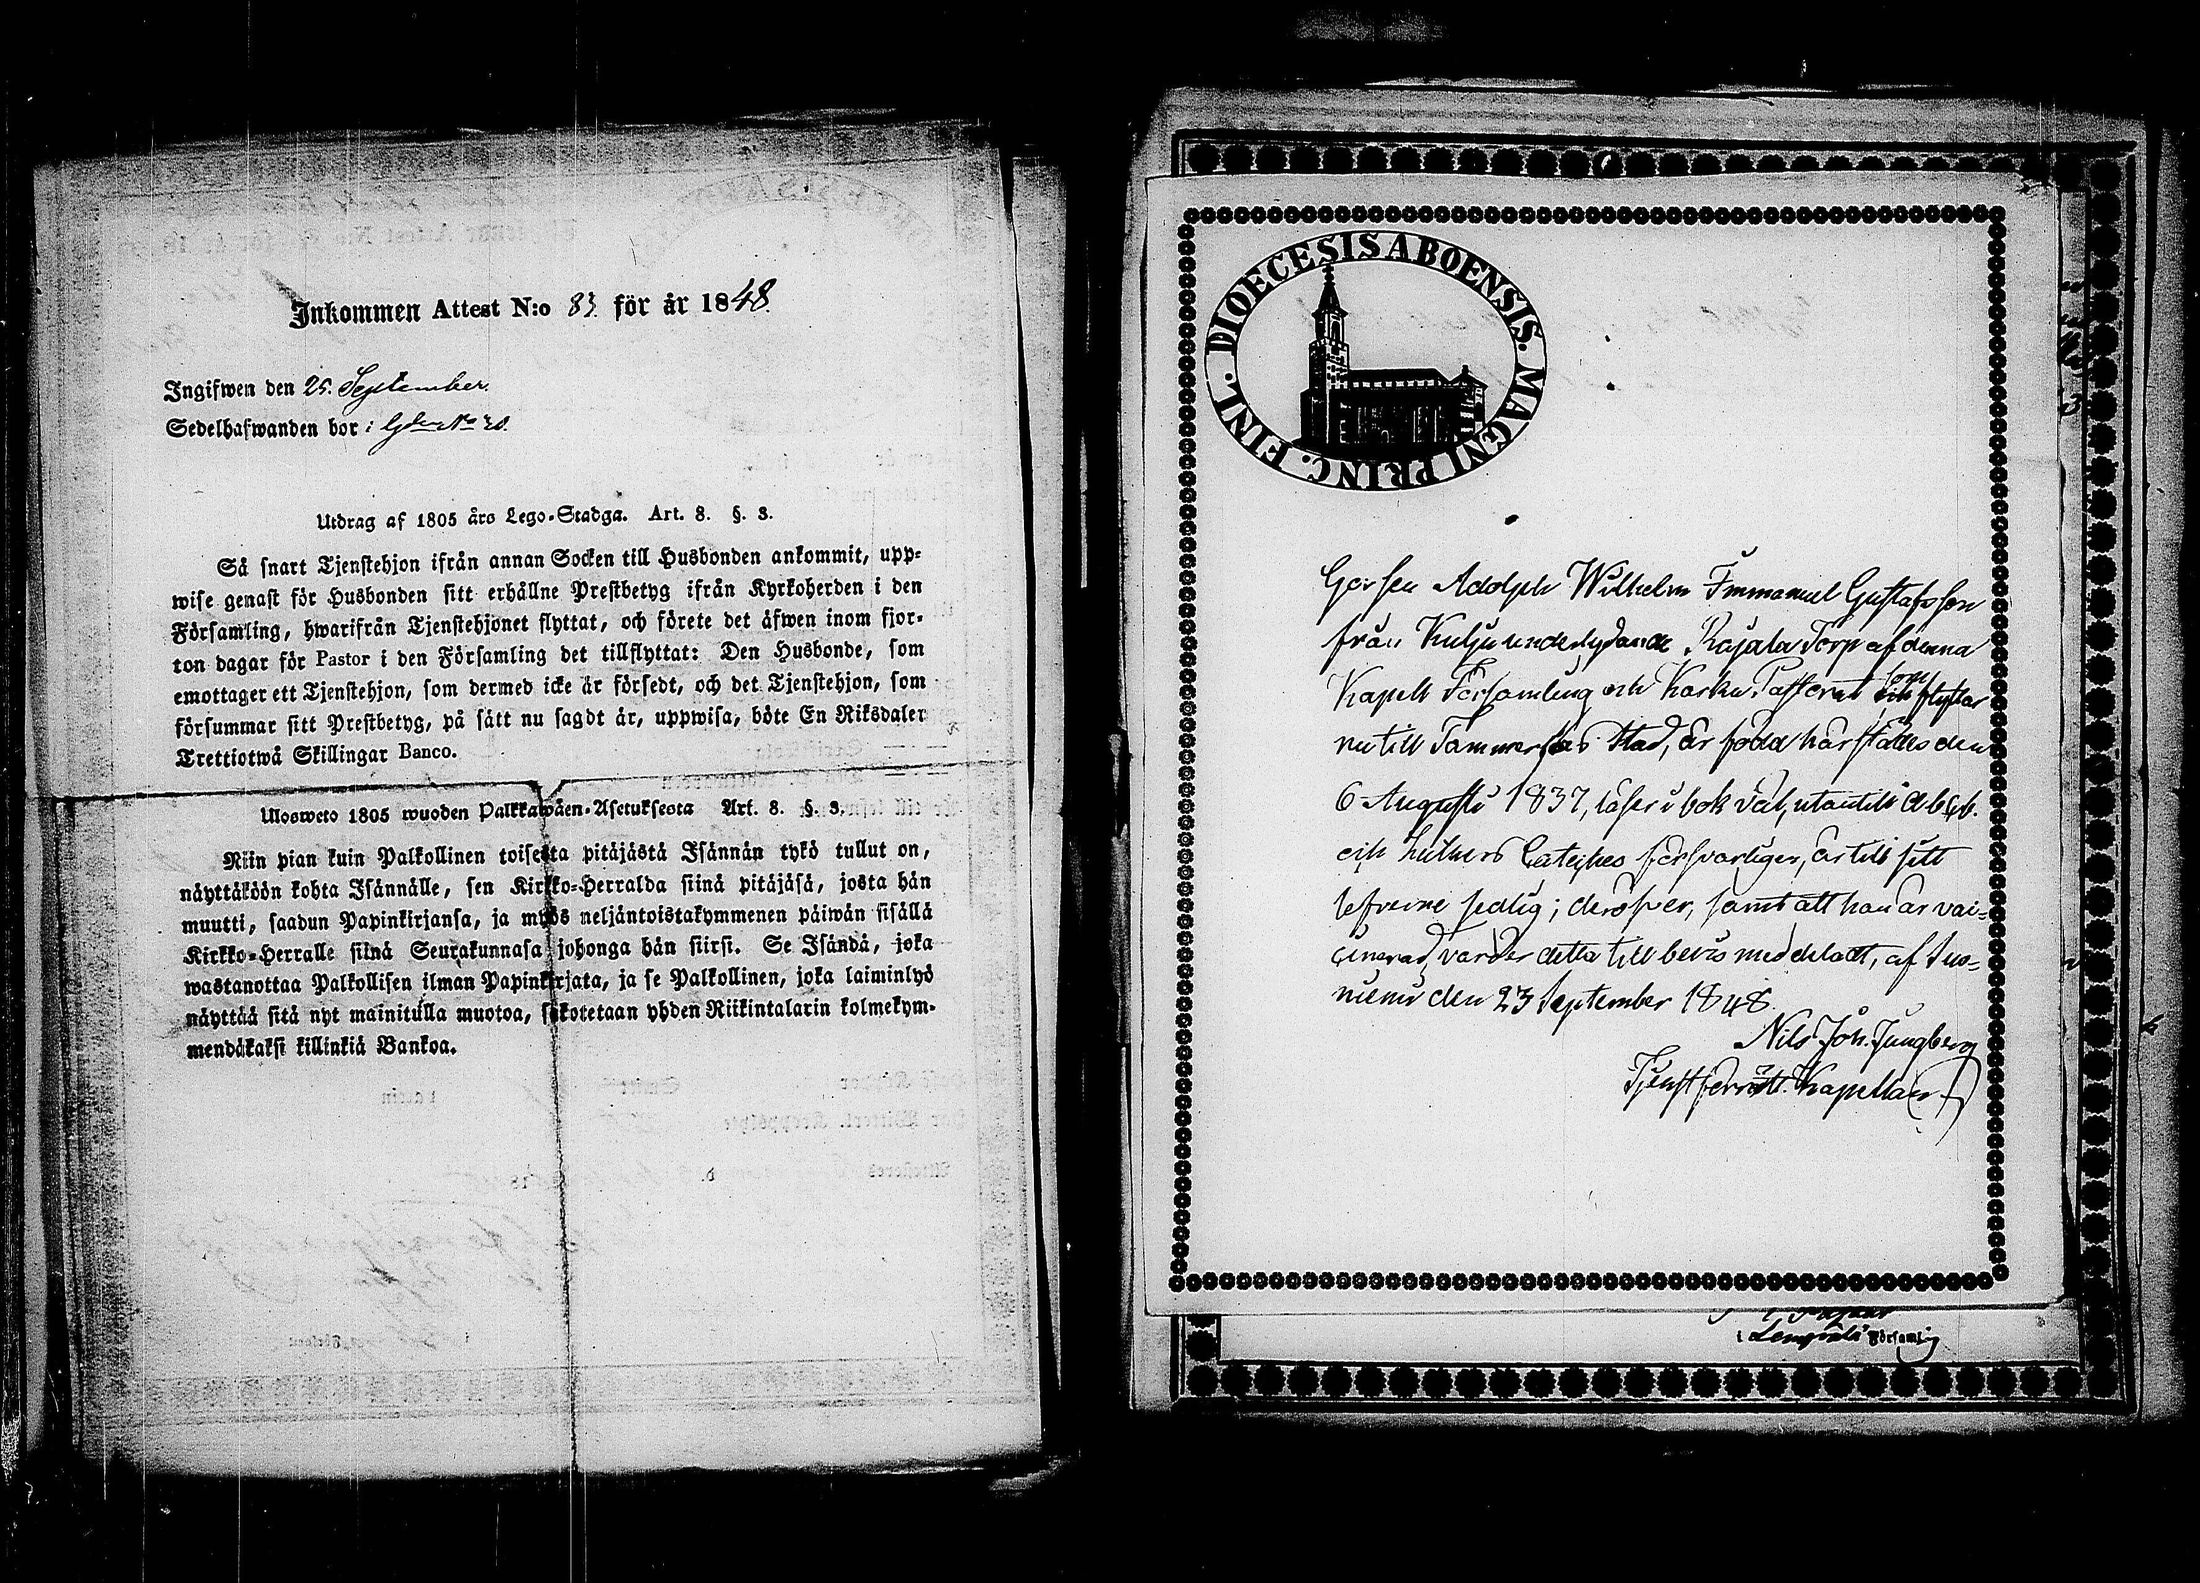 Inkommen Attest N:o 83. för år 1848.
Ingifwen den 25. September.
Sedelhafwanden bor i
Utdrag af 1805 års Lego-Stadga. Art. 8. §. 3.
Så snart Tjenstehjon ifrån annan Socken till Husbonden ankommit, upp-
wise genast för Husbonden sitt erhållne Prestbetyg ifrån Kyrkoherden i den
Församling, hwarifrån Tjenstehjonet flyttat, och förete det äfwen inom fjor-
ton dagar för Pastor i den Församling det tillflyttat: Den Husbonde, som
emottager ett Tjenstehjon, som dermed icke är försedt, och det Tjenstehjon, som
försummar sitt Prestbetyg, på sätt nu sagdt är, uppwisa, böte En Riksdaler
Trettiotwå Skillingar Banco.
Ulosweto 1805 wuoden Palkkawäen-Asetuksesta Art. 8. §. 3.
Niin pian kuin Palkollinen toisesta pitäjästä Isännän tykö tullut on,
näyttäköön kohta Isännälle, sen Kirkko-Herralda siinä pitäjäsä, josta hän
muutti, saadun Papinkirjansa, ja myös neljäntoistakymmenen päiwän sisällä
Kirkko-Herralle siinä Seurakunnasa johonga hän siirsi. Se Isändä, joka
wastanottaa Palkollisen ilman Papinkirjata, ja se Palkollinen, joka laiminlyö
näyttää sitä nyt mainitulla muotoa, sakotetaan yhden Riikintalarin kolmekym-
mendäkaksi killinkiä Bankoa.
DIOECESIS ABOENSIS. MAGNI PRINC. FINL.
Gossen Adolph Wilhelm Immanuel Gustafsson
från Kulju underlydande Rajala Torp af denna
Kapell Församling och Karku Pastorat som flyttar
nu till Tammerfors Stad, är född härstädes den
6 Augusti 1837, läser i bok väl, utantill abcb.
och Luthers Cateches försvarligen, är till sitt
lefverne sedlig; deröfver, samt att han är vac-
cinerad, varder detta till bevis meddeladt, af Suo-
niemi den 23 September 1848.
Nils Joh. Ljungberg
Tjenstförrätt. Kapellan
i Lempälä Församling